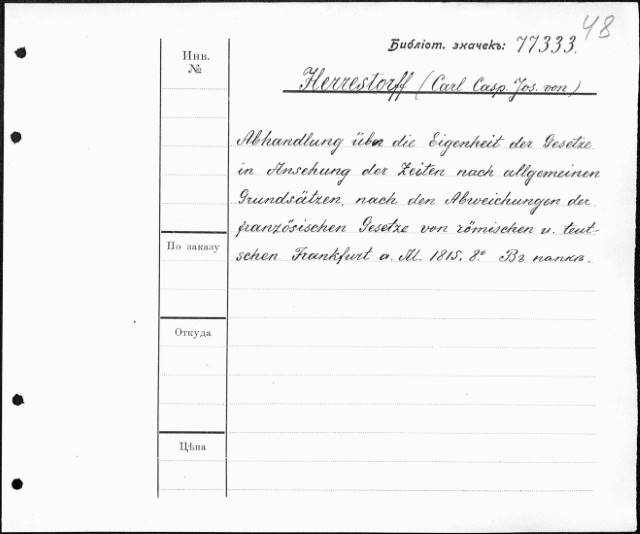 48
Библіот. значекъ: 77333.
Инв.
№
Herrestorff (Carl Casp. Jos. von)
Abhandlung über die Eigenheit der Gesetze
in Ansehung der Zeiten nach allgemeinen
Grundsätzen, nach den Abweichungen der
französischen Gesetze von römischen u. teut-
schen. Frankfurt a. M. 1815. 8.° Въ папкѣ.
По заказу
Откуда
Цѣна